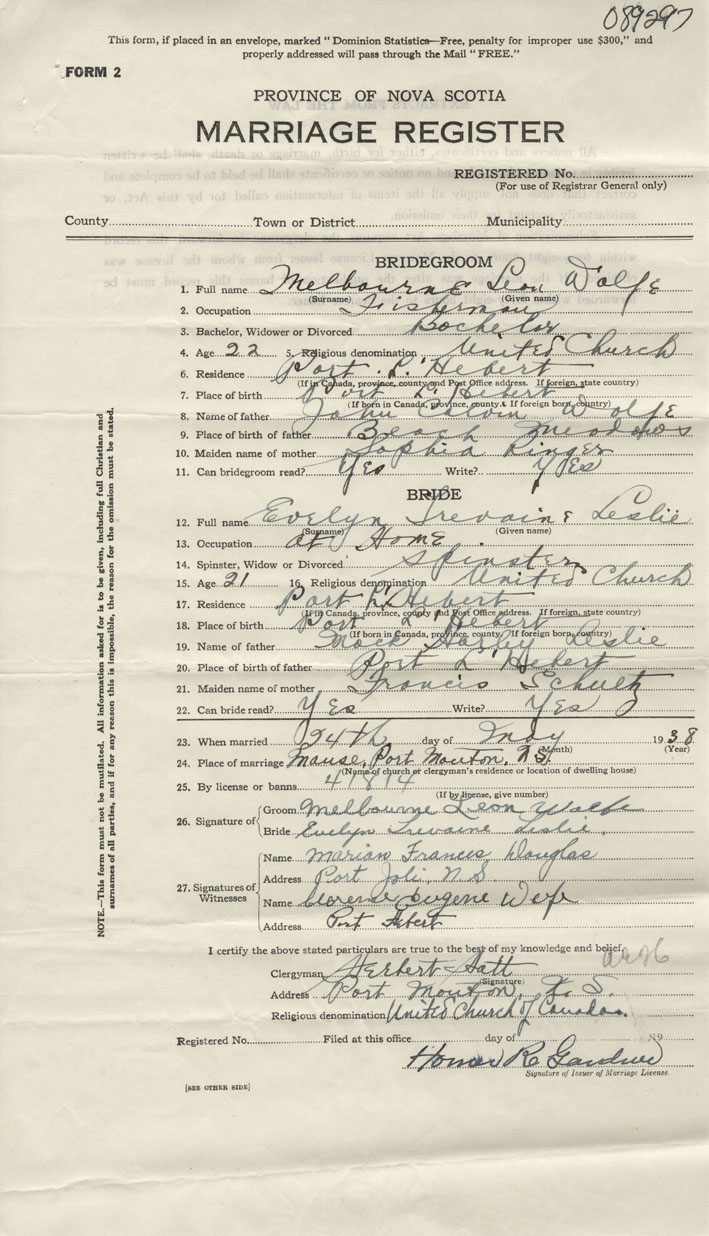 089297
This form, if placed in an envelope, marked "Dominion Statistics—Free, penalty for improper use $300," and
properly addressed will pass through the Mail "FREE."
FORM 2
PROVINCE OF NOVA SCOTIA
MARRIAGE REGISTER
REGISTERED No.
(For use of Registrar General only)
County Town or District Municipality
BRIDEGROOM
1. Full name Melbourne Leon Wolfe
(Surname) (Given name)
2. Occupation Fisherman
3. Bachelor, Widower or Divorced Bachelor
4. Age 22 5. Religious denomination United Church
6. Residence Port L'Hebert
(If in Canada, province, county and Post Office address. If foreign, state country)
7. Place of birth Port L'Hebert
(If born in Canada, province, county. If foreign born, country)
8. Name of father John Calvin Wolfe
9. Place of father Beach Meadows
10. Maiden name of mother Sophia Ringer
11. Can bridegroom read? Yes Write? Yes
BRIDE
12. Full name Evelyn Irevaine Leslie
(Surname) (Given name)
13. Occupation at Home
14. Spinster, Widow or Divorced Spinster
15. Age 21 16. Religious denomination United Church
17. Residence Port L'Hebert
(If in Canada, province, county and Post Office address. If foreign, state country)
18. Place of birth Port L'Hebert
(If born in Canada, province, county. If foreign born, country)
19. Name of father Harley Leslie
20. Place of birth of father Port L'Hebert
21. Maiden name of mother Francis Schultz
22. Can bride read? Yes Write? Yes
23. When married 24th day of May 1938
(Month) (Year)
24. Place of marriage Manse, Port Mouton, N.S.
(Name of church or clergyman's residence or location of dwelling house)
25. By license or banns 41814
(If by license, give number)
26. Signature of Groom Melbourne Leon Wolfe
Bride Evelyn Irevaine Leslie
27. Signatures of Witnesses
Name Marian Frances Douglas
Address Port Joli, N.S.
Name Clarence Eugene
Address Port Hebert
I certify the above stated particulars are true to the best of my knowledge and belief,
Clergyman Herbert
(Signature)
Address Port Mouton, N.S.
Religious denomination United Church of Canada.
Registered No. Filed at this office day of 19
Homer R Gardner
Signature of Issuer of Marriage License.
[SEE OTHER SIDE]
NOTE.—This form must not be mutilated. All information asked for is to be given, including full Christian and
surnames of all parties, and if for any reason this is impossible, the reason for the omission must be stated.